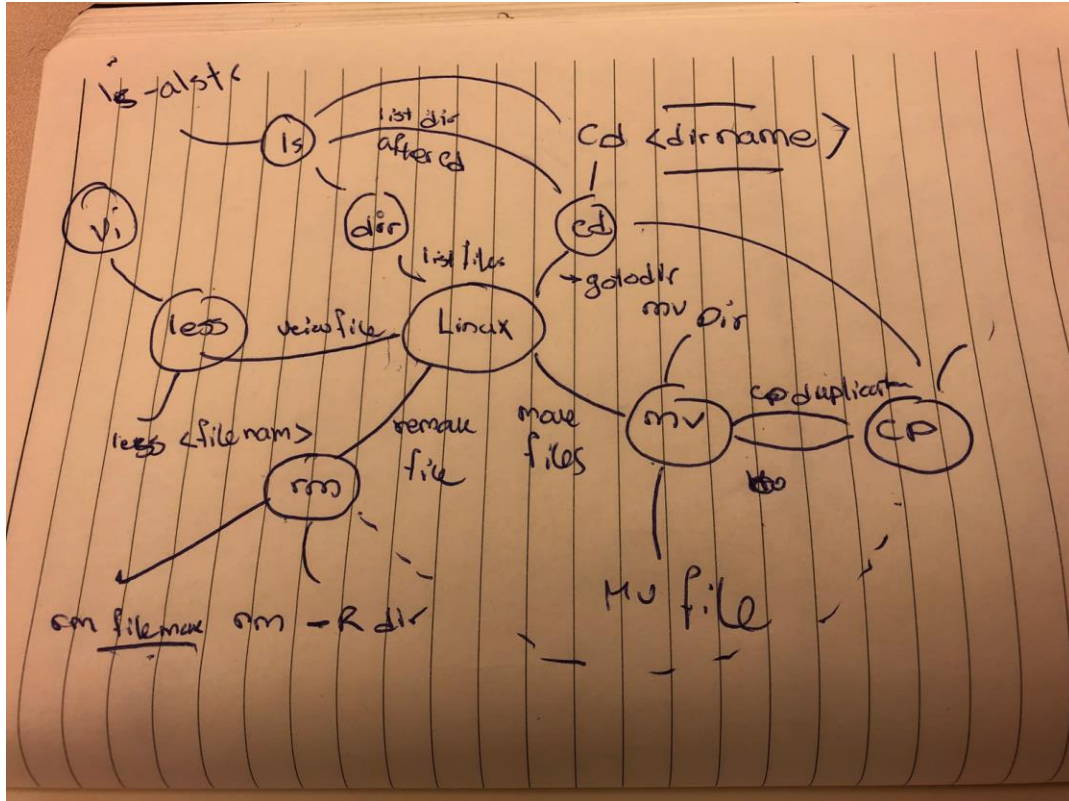 ls -alst
ls
list dir
after cd
cd <dirname>
vi
dir
cd
list files
→ goto dir
less
veiw file
Linux
mv Dir
less <filenam>
move
files
mv
cp duplicat
cp
rm
file
rm
rm -R dir
Mv file